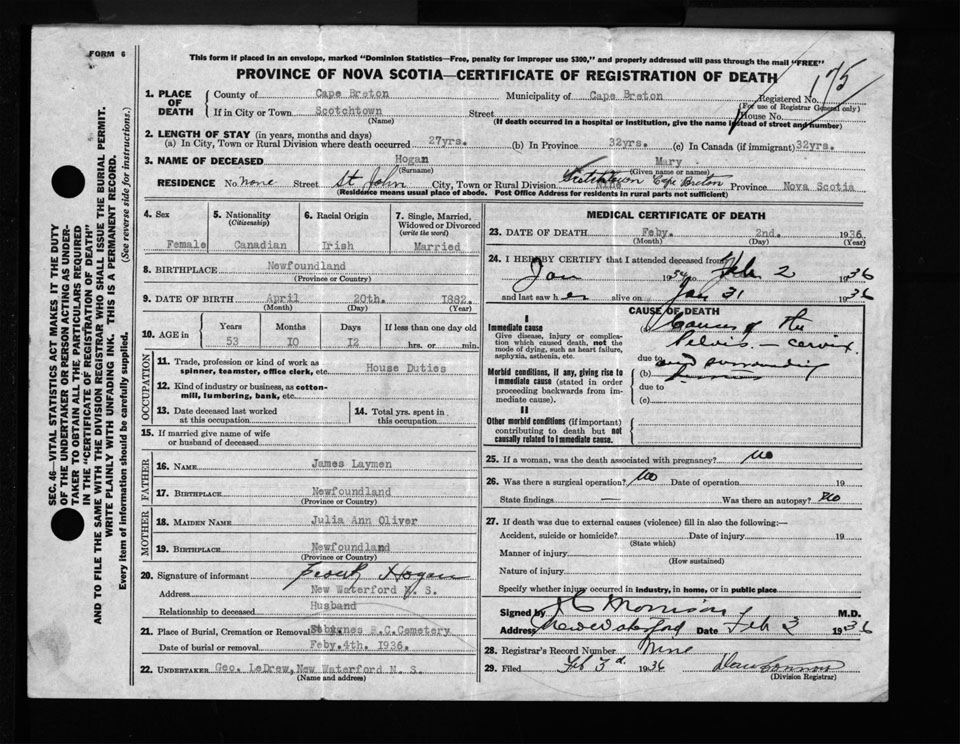 FORM 6
This form if placed in an envelope, marked "Dominion Statistics—Free, penalty for improper use $300," and properly addressed will pass through the mail "FREE"
PROVINCE OF NOVA SCOTIA—CERTIFICATE OF REGISTRATION OF DEATH
175
SEC. 46—VITAL STATISTICS ACT MAKES IT THE DUTY
OF THE UNDERTAKER OR PERSON ACTING AS UNDER-
TAKER TO OBTAIN ALL THE PARTICULARS REQUIRED
IN THE "CERTIFICATE OF REGISTRATION OF DEATH"
AND TO FILE THE SAME WITH THE DIVISION REGISTRAR WHO SHALL ISSUE THE BURIAL PERMIT.
WRITE PLAINLY WITH UNFADING INK. THIS IS A PERMANENT RECORD.
Every item of information should be carefully supplied. (See reverse side for instructions.)
1. PLACE OF DEATH
County of Cape Breton Municipality of Cape Breton Registered No.
(For use of Registrar General only)
If in City or Town Scotchtown Street House No.
(Name) (If death occurred in a hospital or institution, give the name instead of street and number)
2. LENGTH OF STAY (in years, months and days)
(a) In City, Town or Rural Division where death occurred 27yrs. (b) In Province 32yrs. (c) In Canada (if immigrant) 32yrs.
3. NAME OF DECEASED Hogan Mary
(Surname) (Given name or names)
RESIDENCE No. none Street St John City, Town or Rural Division Scotchtown Cape Breton Province Nova Scotia
Nine
(Residence means usual place of abode. Post Office Address for residents in rural parts not sufficient)
4. Sex
Female
5. Nationality
(Citizenship)
Canadian
6. Racial Origin
Irish
7. Single, Married,
Widowed or Divorced
(write the word)
Married
8. BIRTHPLACE Newfoundland
(Province or Country)
9. DATE OF BIRTH April 20th. 1882.
(Month) (Day) (Year)
10. AGE in
Years Months Days If less than one day old
53 10 12 hrs. or min.
OCCUPATION
11. Trade, profession or kind of work as
spinner, teamster, office clerk, etc. House Duties
12. Kind of industry or business, as cotton-
mill, lumbering, bank, etc.
13. Date deceased last worked
at this occupation
14. Total yrs. spent in
this occupation
15. If married give name of wife
or husband of deceased
FATHER
16. NAME James Laymen
17. BIRTHPLACE Newfoundland
(Province or Country)
MOTHER
18. MAIDEN NAME Julia Ann Oliver
19. BIRTHPLACE Newfoundland
(Province or Country)
20. Signature of informant Hogan
Address New Waterford N. S.
Relationship to deceased Husband
21. Place of Burial, Cremation or Removal R.C.Cemetery
Date of burial or removal Feby.4th. 1936.
22. UNDERTAKER Geo. LeDrew, New Waterford N. S.
(Name and address)
MEDICAL CERTIFICATE OF DEATH
23. DATE OF DEATH Feby. 2nd. 1936.
(Month) (Day) (Year)
24. I HEREBY CERTIFY that I attended deceased from
Jan 19 to Feb 2 1936
and last saw her alive on Jan 31 1936
CAUSE OF DEATH
I
Immediate cause
Give disease, injury or complica-
tion which caused death, not the
mode of dying, such as heart failure,
asphyxia, asthenia, etc.
Cancer of the
Pelvis – cervix
due to
and surrounding
(b)
due to
(c)
Morbid conditions, if any, giving rise to
immediate cause (stated in order
proceeding backwards from im-
mediate cause).
II
Other morbid conditions (if important)
contributing to death but not
causally related to immediate cause.
25. If a woman, was the death associated with pregnancy? No
26. Was there a surgical operation? No Date of operation 19
State findings — Was there an autopsy? No
27. If death was due to external causes (violence) fill in also the following:—
Accident, suicide or homicide? Date of injury 19
(State which)
Manner of injury
(How sustained)
Nature of injury
Specify whether injury occurred in industry, in home, or in public place
Signed by Morrison M.D.
Address New Waterford Date Feb 3 1936
28. Registrar's Record Number Nine
29. Filed Feb 3rd. 1936
(Division Registrar)